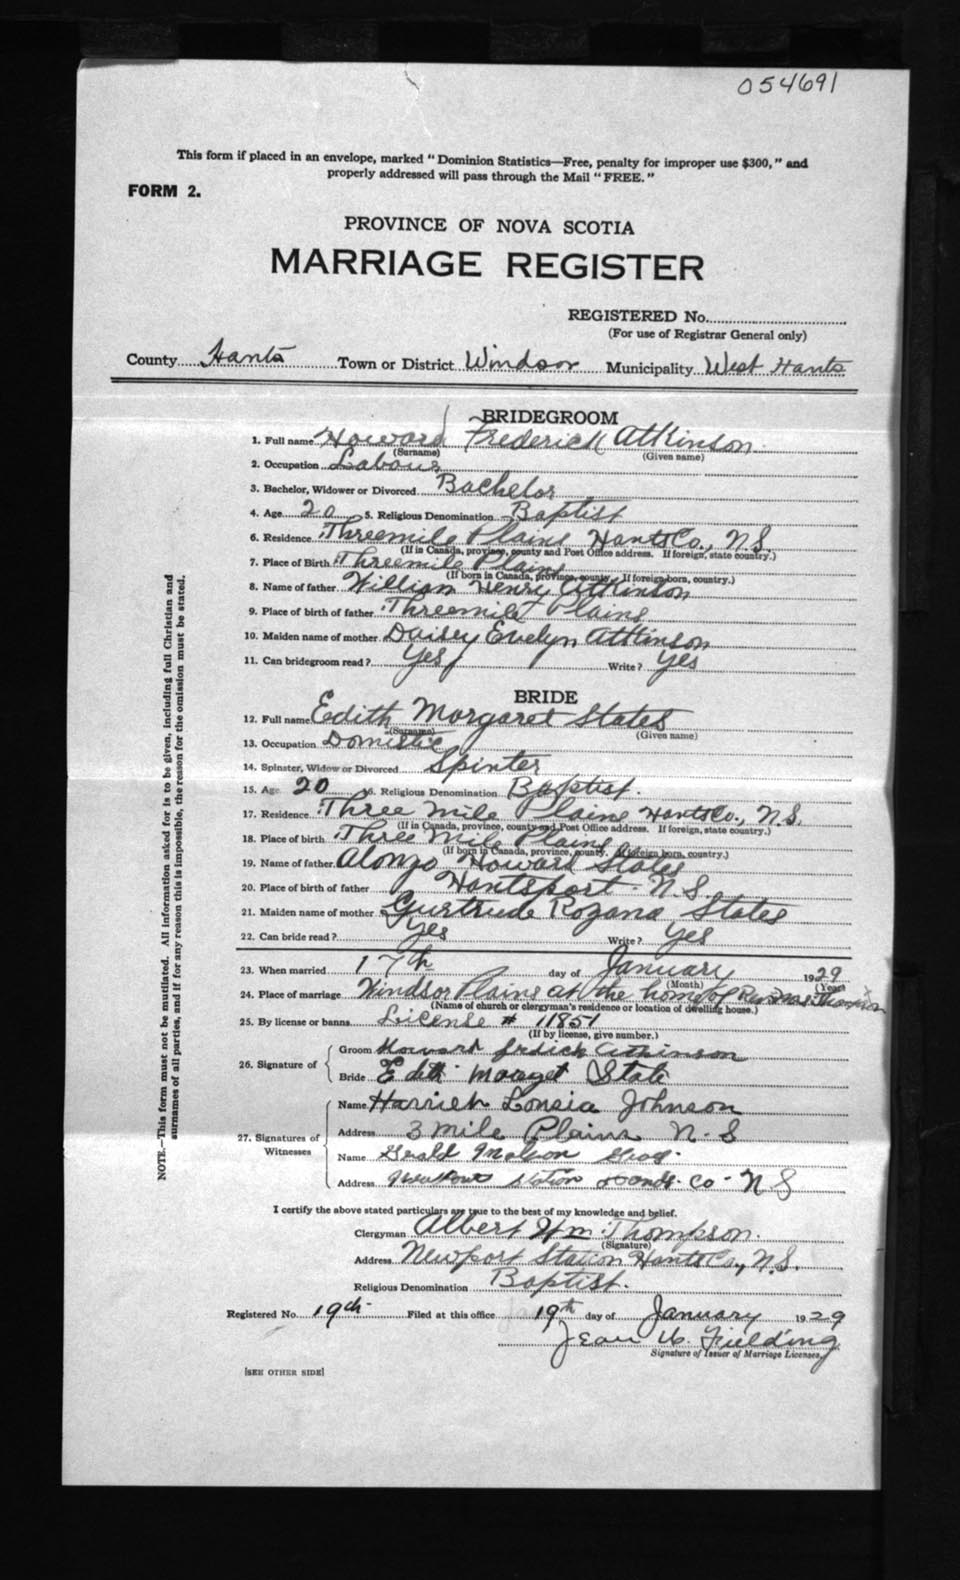 054691
This form if placed in an envelope, marked "Dominion Statistics—Free, penalty for improper use $300," and
properly addressed will pass through the Mail "FREE."
FORM 2.
PROVINCE OF NOVA SCOTIA
MARRIAGE REGISTER
REGISTERED No.
(For use of Registrar General only)
County Hants Town or District Windsor Municipality West Hants
BRIDEGROOM
1. Full name Howard Frederick Atkinson
(Surname) (Given name)
2. Occupation Labour
3. Bachelor, Widower or Divorced Bachelor
4. Age 20 5. Religious Denomination Baptist
6. Residence Threemile Plains Hants Co., N.S.
(If in Canada, province, county and Post Office address. If foreign, state country.)
7. Place of Birth Threemile Plains
(If born in Canada, province, county. If foreign born, country.)
8. Name of father William Henry Atkinson
9. Place of birth of father Threemile Plains
10. Maiden name of mother Daisey Evelyn Atkinson
11. Can bridegroom read? Yes Write? Yes
BRIDE
12. Full name Edith Margaret States
(Surname) (Given name)
13. Occupation Domestic
14. Spinster, Widow or Divorced Spinter
15. Age 20 16. Religious Denomination Baptist.
17. Residence Three Mile Plains Hants Co., N.S.
(If in Canada, province, county and Post Office address. If foreign, state country.)
18. Place of birth Three Mile Plains
(If born in Canada, province, county. If foreign born, country.)
19. Name of father Alonzo Howard States
20. Place of birth of father Hantsport N.S.
21. Maiden name of mother Gurtrude Rozana States
22. Can bride read? Yes Write? Yes
23. When married 17th day of January 1929
(Month) (Year)
24. Place of marriage Windsor Plains at the home of Rev Thompson
(Name of church or clergyman's residence or location of dwelling house.)
25. By license or banns License # 11851
(If by license, give number.)
26. Signature of Groom Howard Atkinson
Bride Edith State
27. Signatures of Witnesses Name Harrieh Lonsia Johnson
Address 3 mile Plains N.S
Name Gerald
Address station Co N S
I certify the above stated particulars are true to the best of my knowledge and belief.
Clergyman Albert Wm Thompson.
(Signature)
Address Newport Station Hants Co., N.S.
Religious Denomination Baptist.
Registered No. 19th Filed at this office 19th day of January 1929
Jean W. Fielding
Signature of Issuer of Marriage Licenses.
[SEE OTHER SIDE]
NOTE.—This form must not be mutilated. All information asked for is to be given, including full Christian and
surnames of all parties, and if for any reason this is impossible, the reason for the omission must be stated.